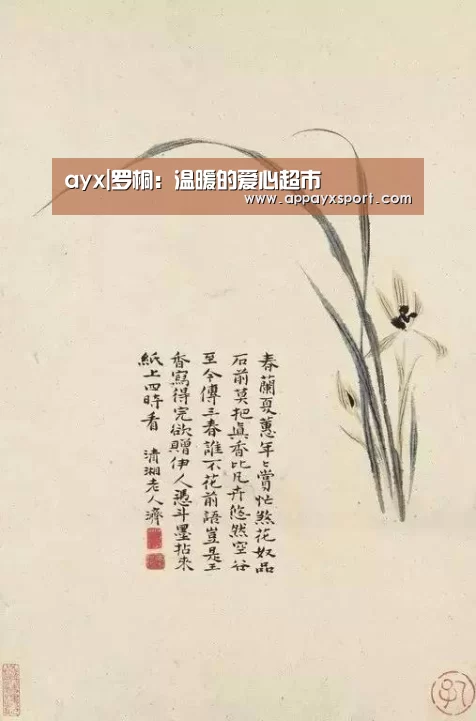 ayx|罗桐：温暖的爱心超市
www.appayxsport.com
春蘭夏蕙年〻嘗忙煞花奴品
石前莫把真香比凡卉悠然空谷
至今傳三春誰不花前語豈是王
香寫得完欲贈伊人憑斗墨拈來
紙上四時看 清湘老人濟